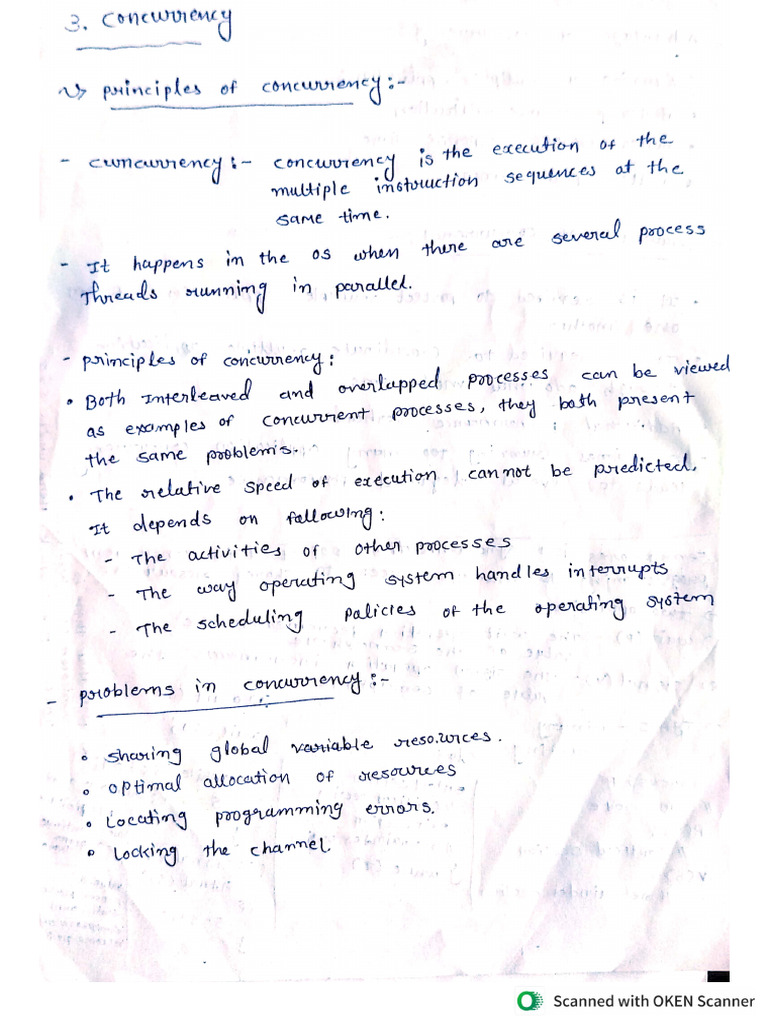 3. Concurrency
1) principles of concurrency:-
- cuncurrency:- concurrency is the execution of the
multiple instruction sequences at the
same time.
- It happens in the os when there are several process
threads running in parallel.
- principles of concurrency:
• Both interleaved and overlapped processes can be viewed
as examples of concurrent processes, they both present
the same problems.
• The relative speed of execution cannot be predicted.
It depends on following:
- The activities of other processes
- The way operating system handles interrupts
- The scheduling palicies of the operating system
- problems in concurrency:-
• sharing global variable resources.
• optimal allocation of resources
• Locating programming errors.
• locking the channel.
Scanned with OKEN Scanner